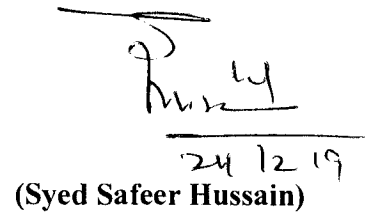 24 12 19
(Syed Safeer Hussain)